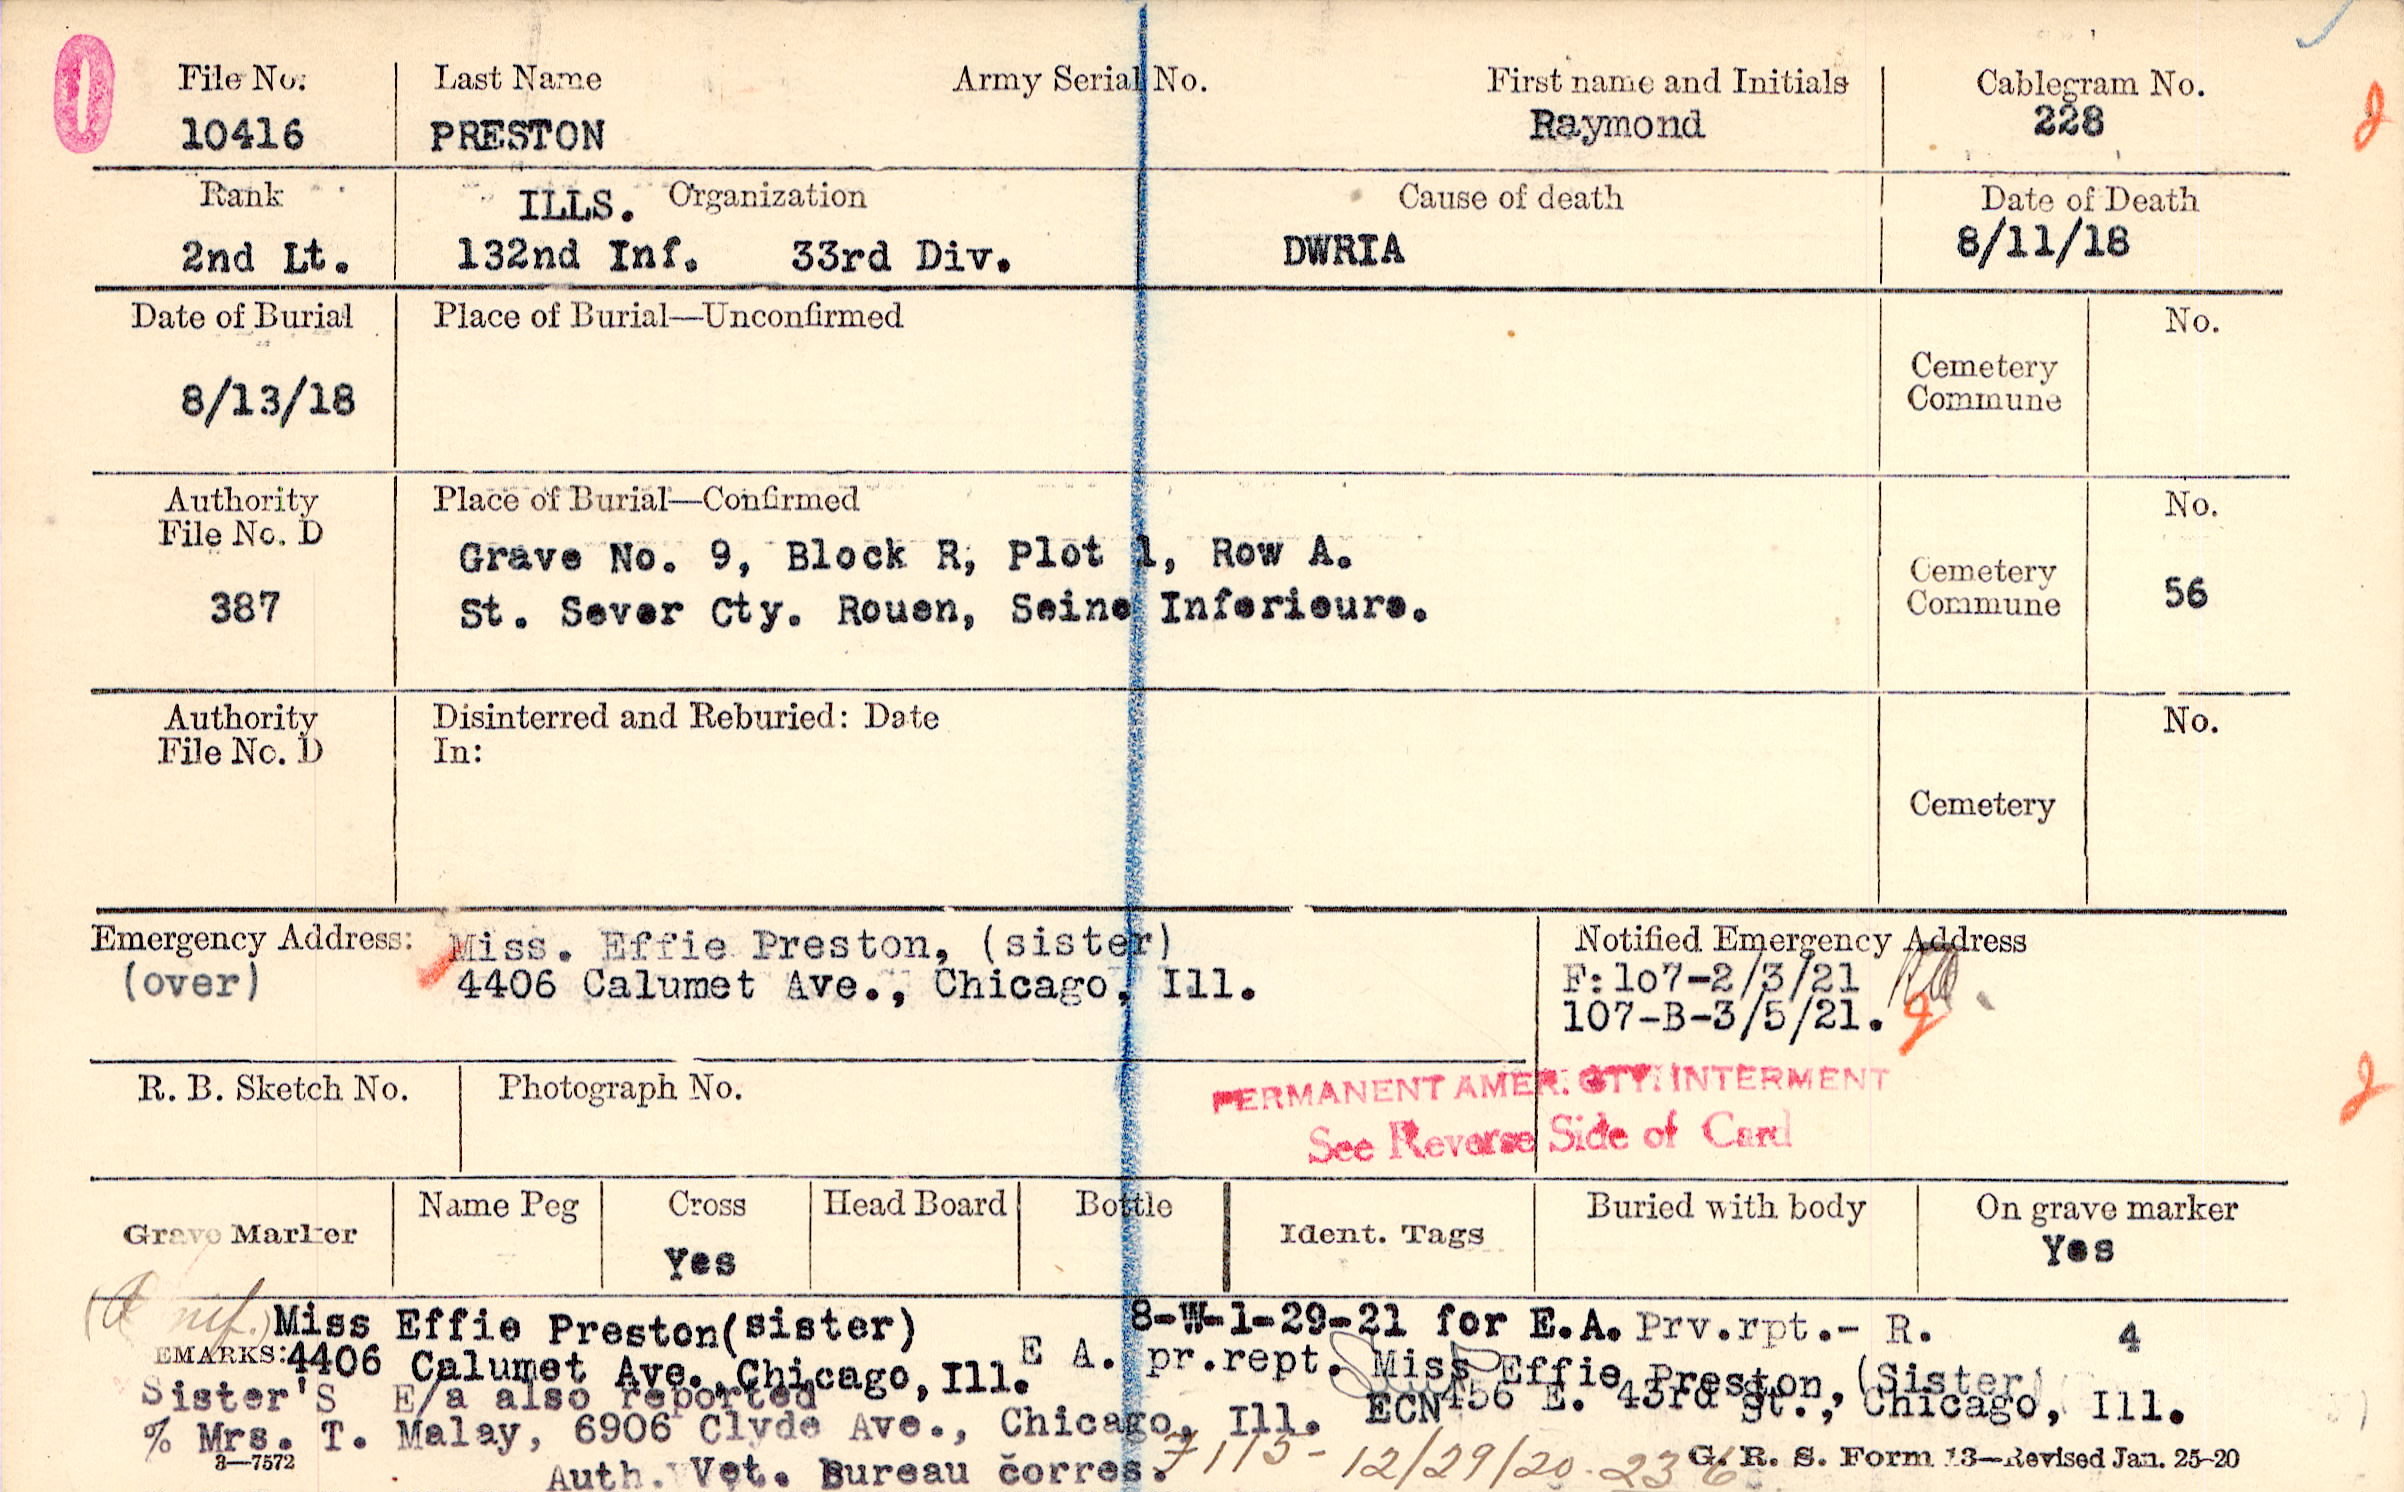 0
File No. Last Name Army Serial No. First name and Initials Cablegram No.
10416 PRESTON Raymond 228
Rank ILLS. Organization Cause of death Date of Death
2nd Lt. 132nd Inf. 33rd Div. DWRIA 8/11/18
Date of Burial Place of Burial—Unconfirmed No.
8/13/18 Cemetery
Commune
Authority Place of Burial—Confirmed No.
File No. D
387 Grave No. 9, Block R, Plot 1, Row A. Cemetery
St. Sever Cty. Rouen, Seine Inferieure. Commune 56
Authority Disinterred and Reburied: Date No.
File No. D In:
Cemetery
Emergency Address: Miss. Effie Preston, (sister) Notified Emergency Address
(over) 4406 Calumet Ave., Chicago, Ill. F:107-2/3/21
107-B-3/5/21.
R. B. Sketch No. Photograph No.
PERMANENT AMER. CTY. INTERMENT
See Reverse Side of Card
Grave Marker Name Peg Cross Head Board Bottle Ident. Tags Buried with body On grave marker
Yes Yes
Miss Effie Preston(sister) 8-W-1-29-21 for E.A. Prv.rpt.- R. 4
EMARKS: 4406 Calumet Ave., Chicago, Ill. E A. pr.rept. Miss Effie Preston, (Sister)
Sister'S E/a also reported ECN 456 E. 43rd St., Chicago, Ill.
% Mrs. T. Malay, 6906 Clyde Ave., Chicago, Ill.
3—7572 Auth. Vet. Bureau corres. 12/29/20 G. R. S. Form 13—Revised Jan. 25-20